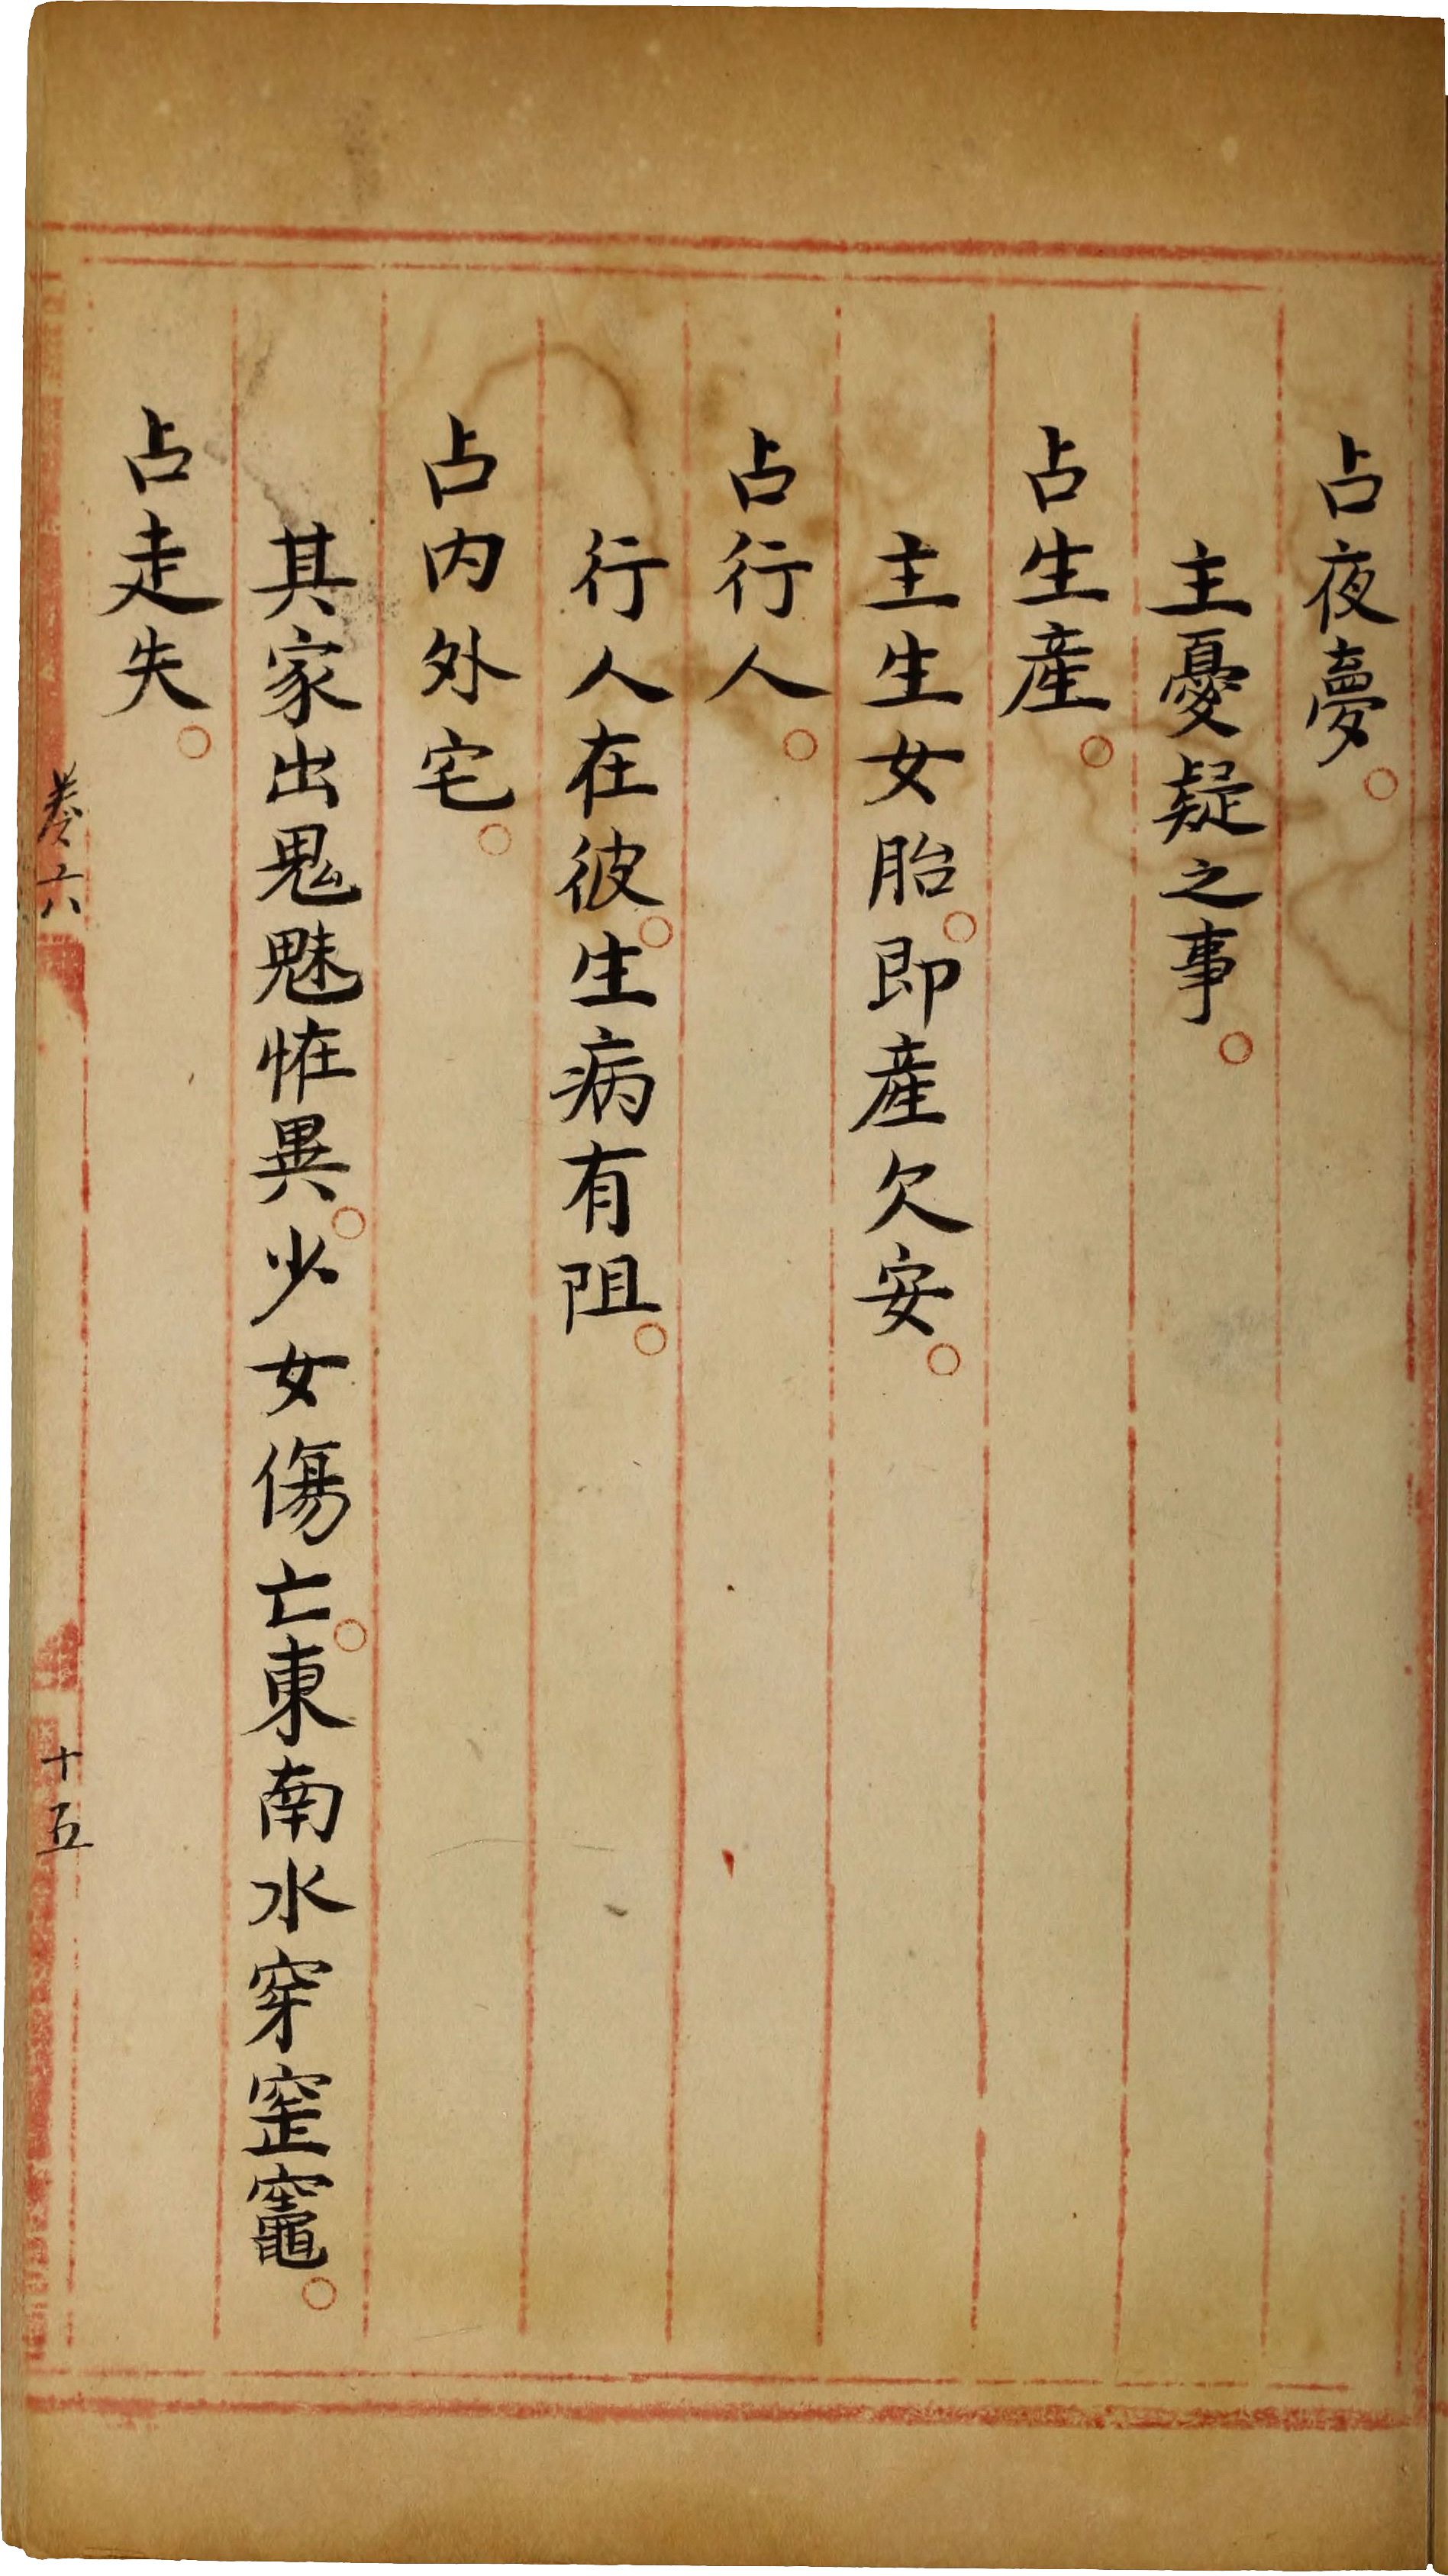 占夜夢。
主憂疑之事。
占生產。
主生女胎。即產欠安。
占行人。
行人在彼。生病有阻。
占内外宅。
其家出鬼魅恠異。少女傷亡。東南水穿窰竈。
占走失。
卷六
十五